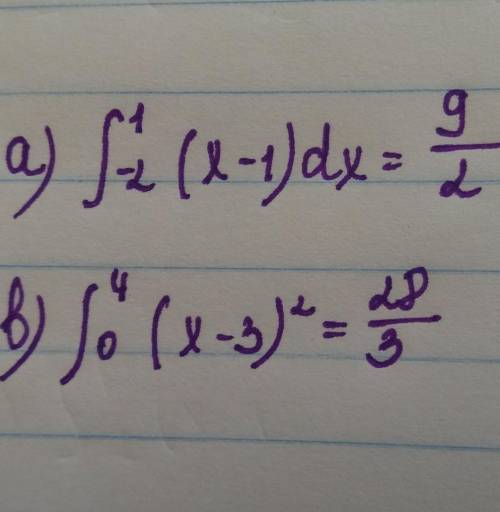 а) ∫₋₂¹ (x-1)dx = 9/2
в) ∫₀⁴ (x-3)² = 28/3